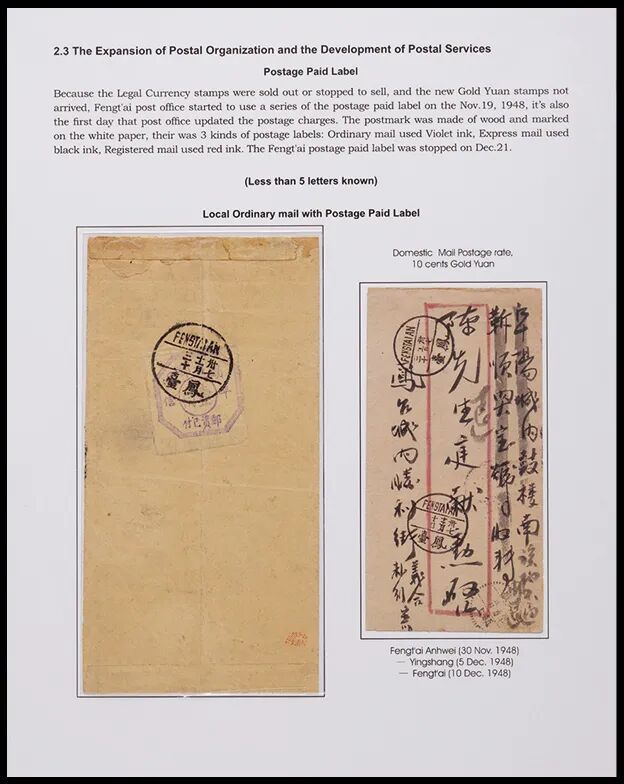 2.3 The Expansion of Postal Organization and the Development of Postal Services
Postage Paid Label
Because the Legal Currency stamps were sold out or stopped to sell, and the new Gold Yuan stamps not
arrived, Fengt'ai post office started to use a series of the postage paid label on the Nov.19, 1948, it's also
the first day that post office updated the postage charges. The postmark was made of wood and marked
on the white paper, their was 3 kinds of postage labels: Ordinary mail used Violet ink, Express mail used
black ink, Registered mail used red ink. The Fengt'ai postage paid label was stopped on Dec.21.
(Less than 5 letters known)
Local Ordinary mail with Postage Paid Label
臺鳳
付已資郵
Domestic Mail Postage rate,
10 cents Gold Yuan
城內鼓樓南
陳先生庭獻勲啓
城內勝利街
義合
臺鳳
Fengt'ai Anhwei (30 Nov. 1948)
— Yingshang (5 Dec. 1948)
— Fengt'ai (10 Dec. 1948)